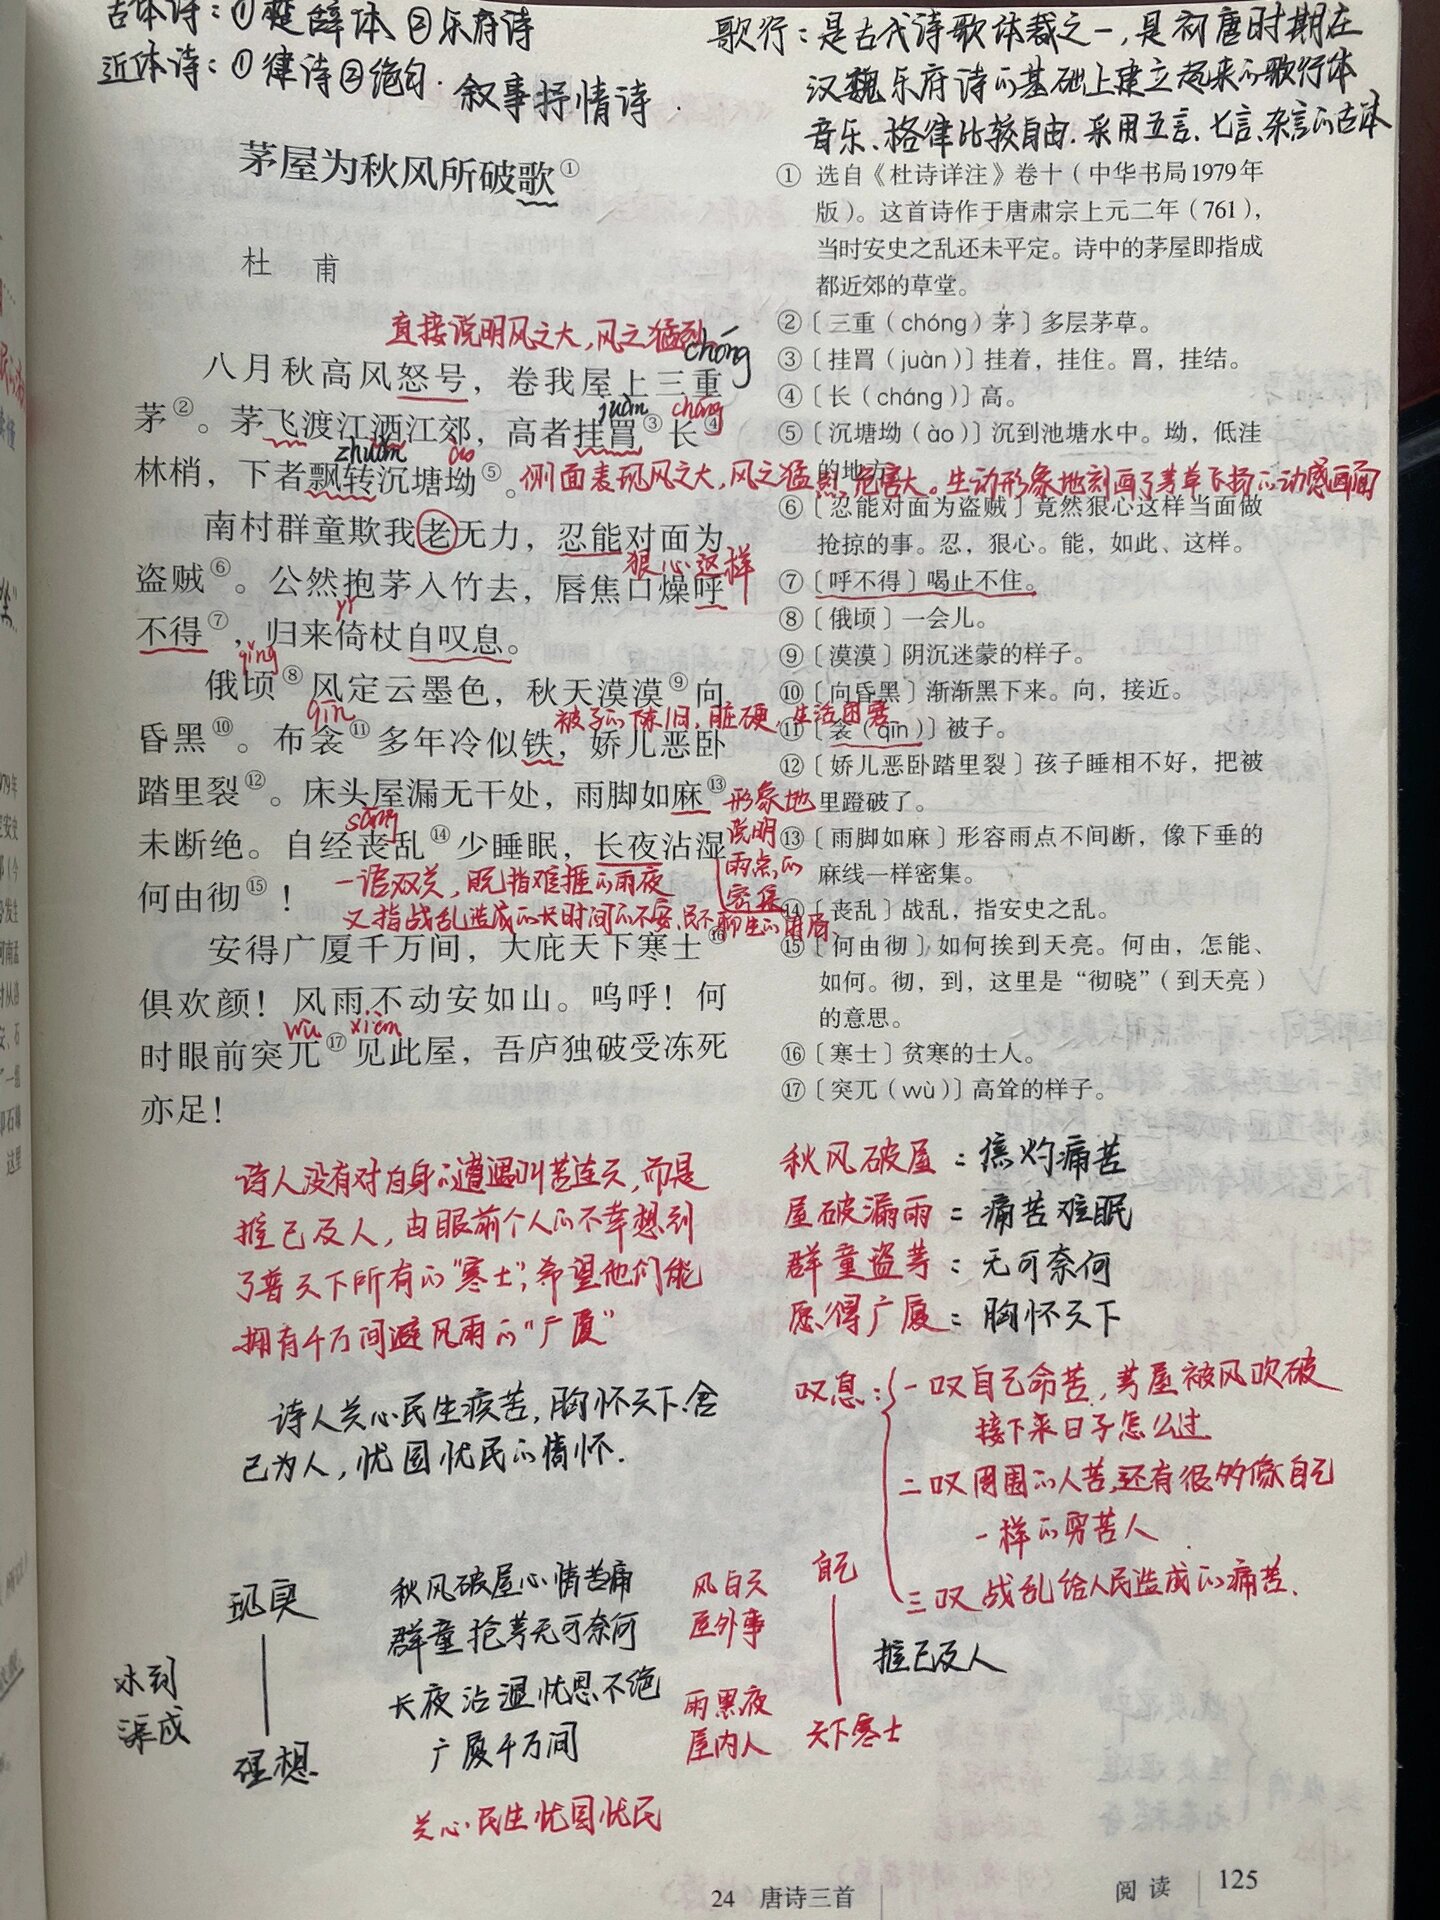 古体诗：①楚辞体 ②乐府诗
近体诗：①律诗②绝句.
叙事抒情诗.
歌行：是古代诗歌体裁之一，是初唐时期在
汉魏乐府诗的基础上建立起来的歌行体
音乐、格律比较自由.采用五言、七言、杂言的古体
茅屋为秋风所破歌①
杜 甫
直接说明风之大,风之猛烈
chóng
八月秋高风怒号，卷我屋上三重
juàn
cháng
茅②。茅飞渡江洒江郊，高者挂罥③长④
zhuǎn
ào
林梢，下者飘转沉塘坳⑤。
侧面表现风之大，风之猛烈,危害大。生动形象地刻画了茅草飞扬的动感画面
南村群童欺我老无力，忍能对面为
狠心这样
盗贼⑥。公然抱茅入竹去，唇焦口燥呼
yǐ
不得⑦，归来倚杖自叹息。
qǐng
俄顷⑧风定云墨色，秋天漠漠⑨向
qīn
被子的陈旧，脏硬，生活困窘
昏黑⑩。布衾⑪多年冷似铁，娇儿恶卧
踏里裂⑫。床头屋漏无干处，雨脚如麻⑬
形象地
说明
雨点的
密集
sāng
未断绝。自经丧乱⑭少睡眠，长夜沾湿
何由彻⑮！
一语双关，既指难捱的雨夜
又指战乱造成的长时间的不安、民不聊生的困局
安得广厦千万间，大庇天下寒士⑯
俱欢颜！风雨不动安如山。呜呼！何
wù
xiàn
时眼前突兀⑰见此屋，吾庐独破受冻死
亦足！
① 选自《杜诗详注》卷十（中华书局1979年
版）。这首诗作于唐肃宗上元二年（761），
当时安史之乱还未平定。诗中的茅屋即指成
都近郊的草堂。
②〔三重（chóng）茅〕多层茅草。
③〔挂罥（juàn）〕挂着，挂住。罥，挂结。
④〔长（cháng）〕高。
⑤〔沉塘坳（ào）〕沉到池塘水中。坳，低洼
的地方。
⑥〔忍能对面为盗贼〕竟然狠心这样当面做
抢掠的事。忍，狠心。能，如此、这样。
⑦〔呼不得〕喝止不住。
⑧〔俄顷〕一会儿。
⑨〔漠漠〕阴沉迷蒙的样子。
⑩〔向昏黑〕渐渐黑下来。向，接近。
⑪〔衾（qīn）〕被子。
⑫〔娇儿恶卧踏里裂〕孩子睡相不好，把被
里蹬破了。
⑬〔雨脚如麻〕形容雨点不间断，像下垂的
麻线一样密集。
⑭〔丧乱〕战乱，指安史之乱。
⑮〔何由彻〕如何挨到天亮。何由，怎能、
如何。彻，到，这里是“彻晓”（到天亮）
的意思。
⑯〔寒士〕贫寒的士人。
⑰〔突兀（wù）〕高耸的样子。
诗人没有对自身的遭遇叫苦连天，而是
推己及人，由眼前个人的不幸想到
了普天下所有的“寒士”，希望他们能
拥有千万间避风雨的“广厦”
诗人关心民生疾苦，胸怀天下.舍
己为人，忧国忧民的情怀.
秋风破屋：焦灼痛苦
屋破漏雨：痛苦难眠
群童盗茅：无可奈何
愿得广厦：胸怀天下
叹息：
一叹自己命苦，茅屋被风吹破
接下来日子怎么过
二叹周围的人苦,还有很多像自己
一样的穷苦人.
三叹战乱给人民造成的痛苦.
水到
渠成
现实
理想
秋风破屋心情苦痛
群童抢茅无可奈何
长夜沾湿忧思不绝
广厦千万间
关心民生忧国忧民
风白天
屋外事
雨黑夜
屋内人
自己
推己及人
天下寒士
24 唐诗三首
阅读
125